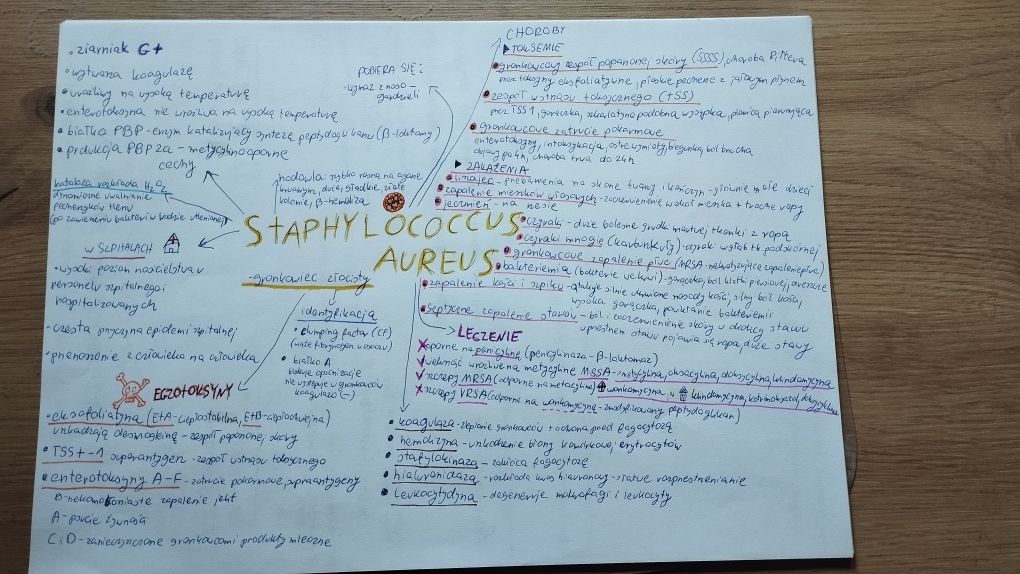 • ziarniak G+
• wytwarza koagulazę
• wrażliwy na wysoką temperaturę
• enterotoksyna nie wrażliwa na wysoką temperaturę
• białko PBP - enzym katalizujący syntezę peptydoglikanu (β-laktamy)
• produkcja PBP2a - metycylinooporne
cechy
katalaza rozkłada H2O2
dynamiczne uwalnianie
pęcherzyków tlenu
(po zawieszeniu bakterii w wodzie utlenionej)
W SZPITALACH
• wysoki poziom nosicielstwa u
personelu szpitalnego i
hospitalizowanych
• częsta przyczyna epidemii szpitalnej
• przenoszenie z człowieka na człowieka
POBIERA SIĘ:
- wymaz z noso-
gardzieli
hodowla: szybko rosną na agarze
krwawym, duże, gładkie, żółte
kolonie, β-hemoliza
STAPHYLOCOCCUS
AUREUS
- gronkowiec złocisty
identyfikacja
• clumping factor (CF)
(wiąże fibrynogen w osoczu)
• białko A
blokuje opsonizację
nie występuje u gronkowców
koagulazo(-)
EGZOTOKSYNY
• eksfoliatyna (EtA - ciepłostabilna, EtB - ciepłochwiejna)
uszkadzają desmogleinę - zespół poparzonej skóry
• TSST-1 superantygen - zespół wstrząsu toksycznego
• enterotoksyny A-F - zatrucie pokarmowe, superantygeny
B - rzekomobłoniaste zapalenie jelit
A - zatrucie żywnością
C i D - zanieczyszczone gronkowcami produkty mleczne
CHOROBY
▶ TOKSEMIE
• gronkowcowy zespół poparzonej skóry (SSSS), choroba Rittera
przez toksyny eksfoliatywne, płaskie pęcherze z jałowym płynem
• zespół wstrząsu toksycznego (TSS)
przez TSST1, gorączka, szkarlatynopodobna wysypka, plamica piorunująca
• gronkowcowe zatrucie pokarmowe
enterotoksyny, intoksykacja, ostre wymioty, biegunka, ból brzucha
objawy po 4h, choroba trwa do 24h
▶ ZAKAŻENIA
• liszajec - przebarwienia na skórze twarzy i kończyn - głównie małe dzieci
• zapalenie mieszków włosowych - zaczerwienienie wokół mieszka + trochę ropy
• jęczmień - na rzęsie
• czyraki - duże bolesne grudki martwej tkanki z ropą
• czyraki mnogie (karbunkuły) - czyraki w głąb tk. podskórnej
• gronkowcowe zapalenie płuc (MRSA - nekrotyzujące zapalenie płuc)
• bakteriemia (bakterie we krwi) - gorączka, ból klatki piersiowej, dreszcze
• zapalenie kości i szpiku - atakuje silnie ukrwione nasady kości, silny ból kości,
wysoka gorączka, powikłanie bakteriemii
• septyczne zapalenie stawów - ból i zaczerwienienie skóry w okolicy stawu
w przestrzeni stawu pojawia się ropa, duże stawy
LECZENIE
✗ oporne na penicylinę (penicylinaza - β-laktamaza)
✓ większość wrażliwa na metycylinę MSSA - metycylina, oksacylina, doksycyklina, klindamycyna
✓ szczepy MRSA (oporne na metycylinę) wankomycyna, klindamycyna, kotrimoksazol, doksycyklina
✗ szczepy VRSA (oporne na wankomycynę - zmodyfikowany peptydoglikan)
• koagulaza - zlepianie gronkowców + ochrona przed fagocytozą
• hemolizyna - uszkodzenie błony komórkowej erytrocytów
• stafylokinaza - zakłóca fagocytozę
• hialuronidaza - rozkłada kwas hialuronowy → szersze rozprzestrzenianie
• leukocydyna - degeneruje makrofagi i leukocyty